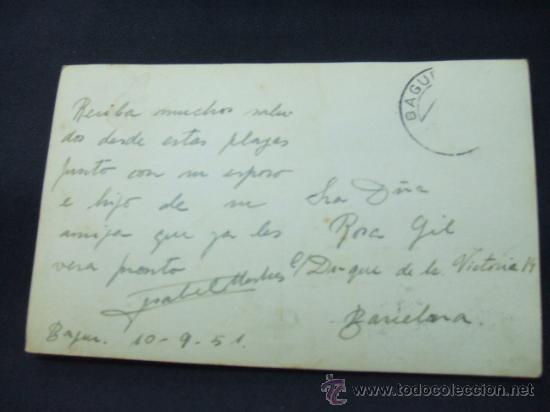 BAGU
Reciba muchos salu
dos desde estas playas
junto con su esposo
e hijo de su
amiga que ya les
vera pronto
Isabel
Bagur. 10-9-51.
Sra Dña
Rosa Gil
C/ Duque de la Victoria 14
Barcelona.
todocoleccion
© www.todocoleccion.net